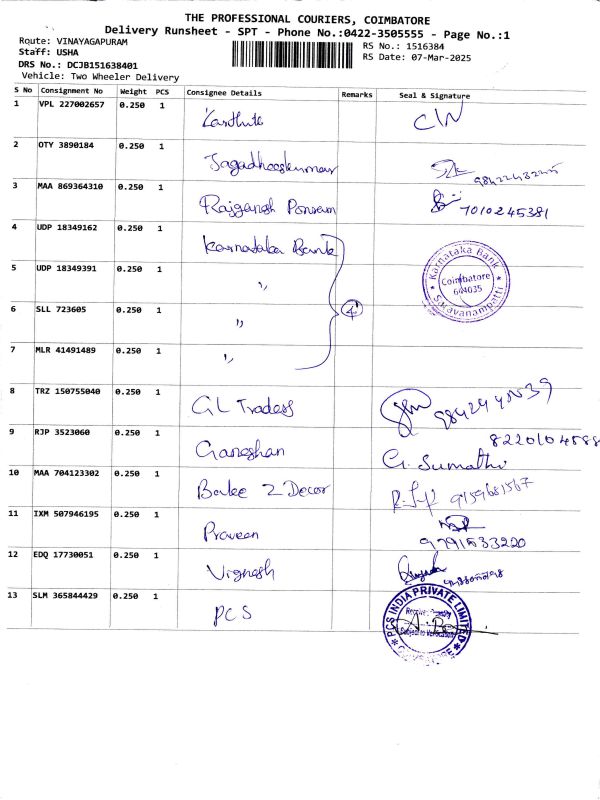 THE PROFESSIONAL COURIERS, COIMBATORE
Delivery Runsheet - SPT - Phone No.:0422-3505555 - Page No.:1
Route: VINAYAGAPURAM
RS No.: 1516384
Staff: USHA
RS Date: 07-Mar-2025
DRS No.: DCJB151638401
Vehicle: Two Wheeler Delivery
S No Consignment No Weight PCS Consignee Details Remarks Seal & Signature
1 VPL 227002657 0.250 1 C/N
2 OTY 3890184 0.250 1
3 MAA 869364310 0.250 1 Rajganesh Ponram 7010245381
4 UDP 18349162 0.250 1 Karnataka Bank
5 UDP 18349391 0.250 1 "
6 SLL 723605 0.250 1 "
7 MLR 41491489 0.250 1 "
4
Karnataka Bank
Coimbatore
Saravanampatti
8 TRZ 150755040 0.250 1 GL Traders
9 RJP 3523060 0.250 1 Ganeshan G. Sumathi
10 MAA 704123302 0.250 1 Decor 9159681567
11 IXM 507946195 0.250 1 Praveen 9791533220
12 EDQ 17730051 0.250 1 Vignesh
13 SLM 365844429 0.250 1 PCS
PCS INDIA PRIVATE LIMITED
Subject to Verification